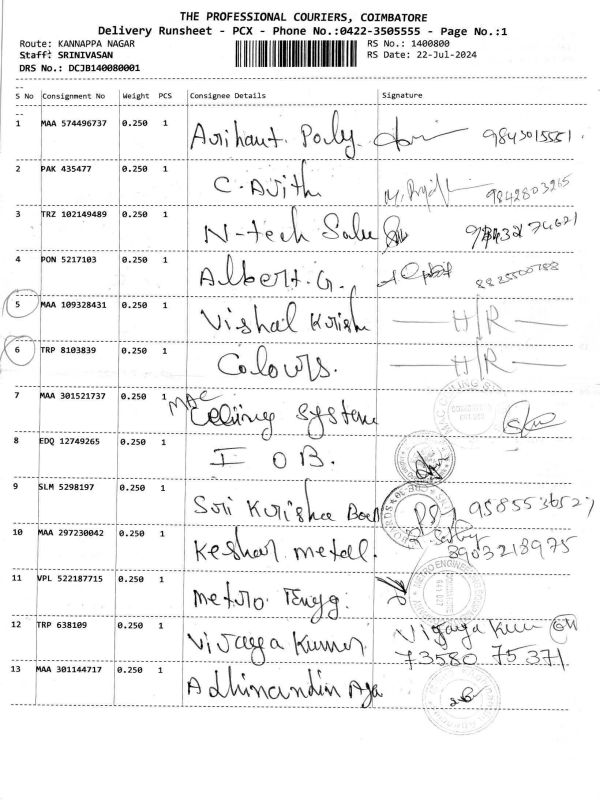 THE PROFESSIONAL COURIERS, COIMBATORE
Delivery Runsheet - PCX - Phone No.:0422-3505555 - Page No.:1
Route: KANNAPPA NAGAR RS No.: 1400800
Staff: SRINIVASAN RS Date: 22-Jul-2024
DRS No.: DCJB140080001
S No Consignment No Weight PCS Consignee Details Signature
1 MAA 574496737 0.250 1 Arihant. Poly 9843015551
2 PAK 435477 0.250 1 C. Avith 9842803265
3 TRZ 102149489 0.250 1 N-tech Sale
4 PON 5217103 0.250 1 Albert. G.
5 MAA 109328431 0.250 1 Vishal Krish H/R
6 TRP 8103839 0.250 1 Colours. H/R
7 MAA 301521737 0.250 1 MAC Ceiling System
8 EDQ 12749265 0.250 1 I O B.
9 SLM 5298197 0.250 1 Sri Krishna Boa
10 MAA 297230042 0.250 1 Keshar metal. 8903218975
11 VPL 522187715 0.250 1 metro Engg.
12 TRP 638109 0.250 1 Vijaya Kumar Vijaya Kum
73580 75371
13 MAA 301144717 0.250 1 Adhinandin Aga